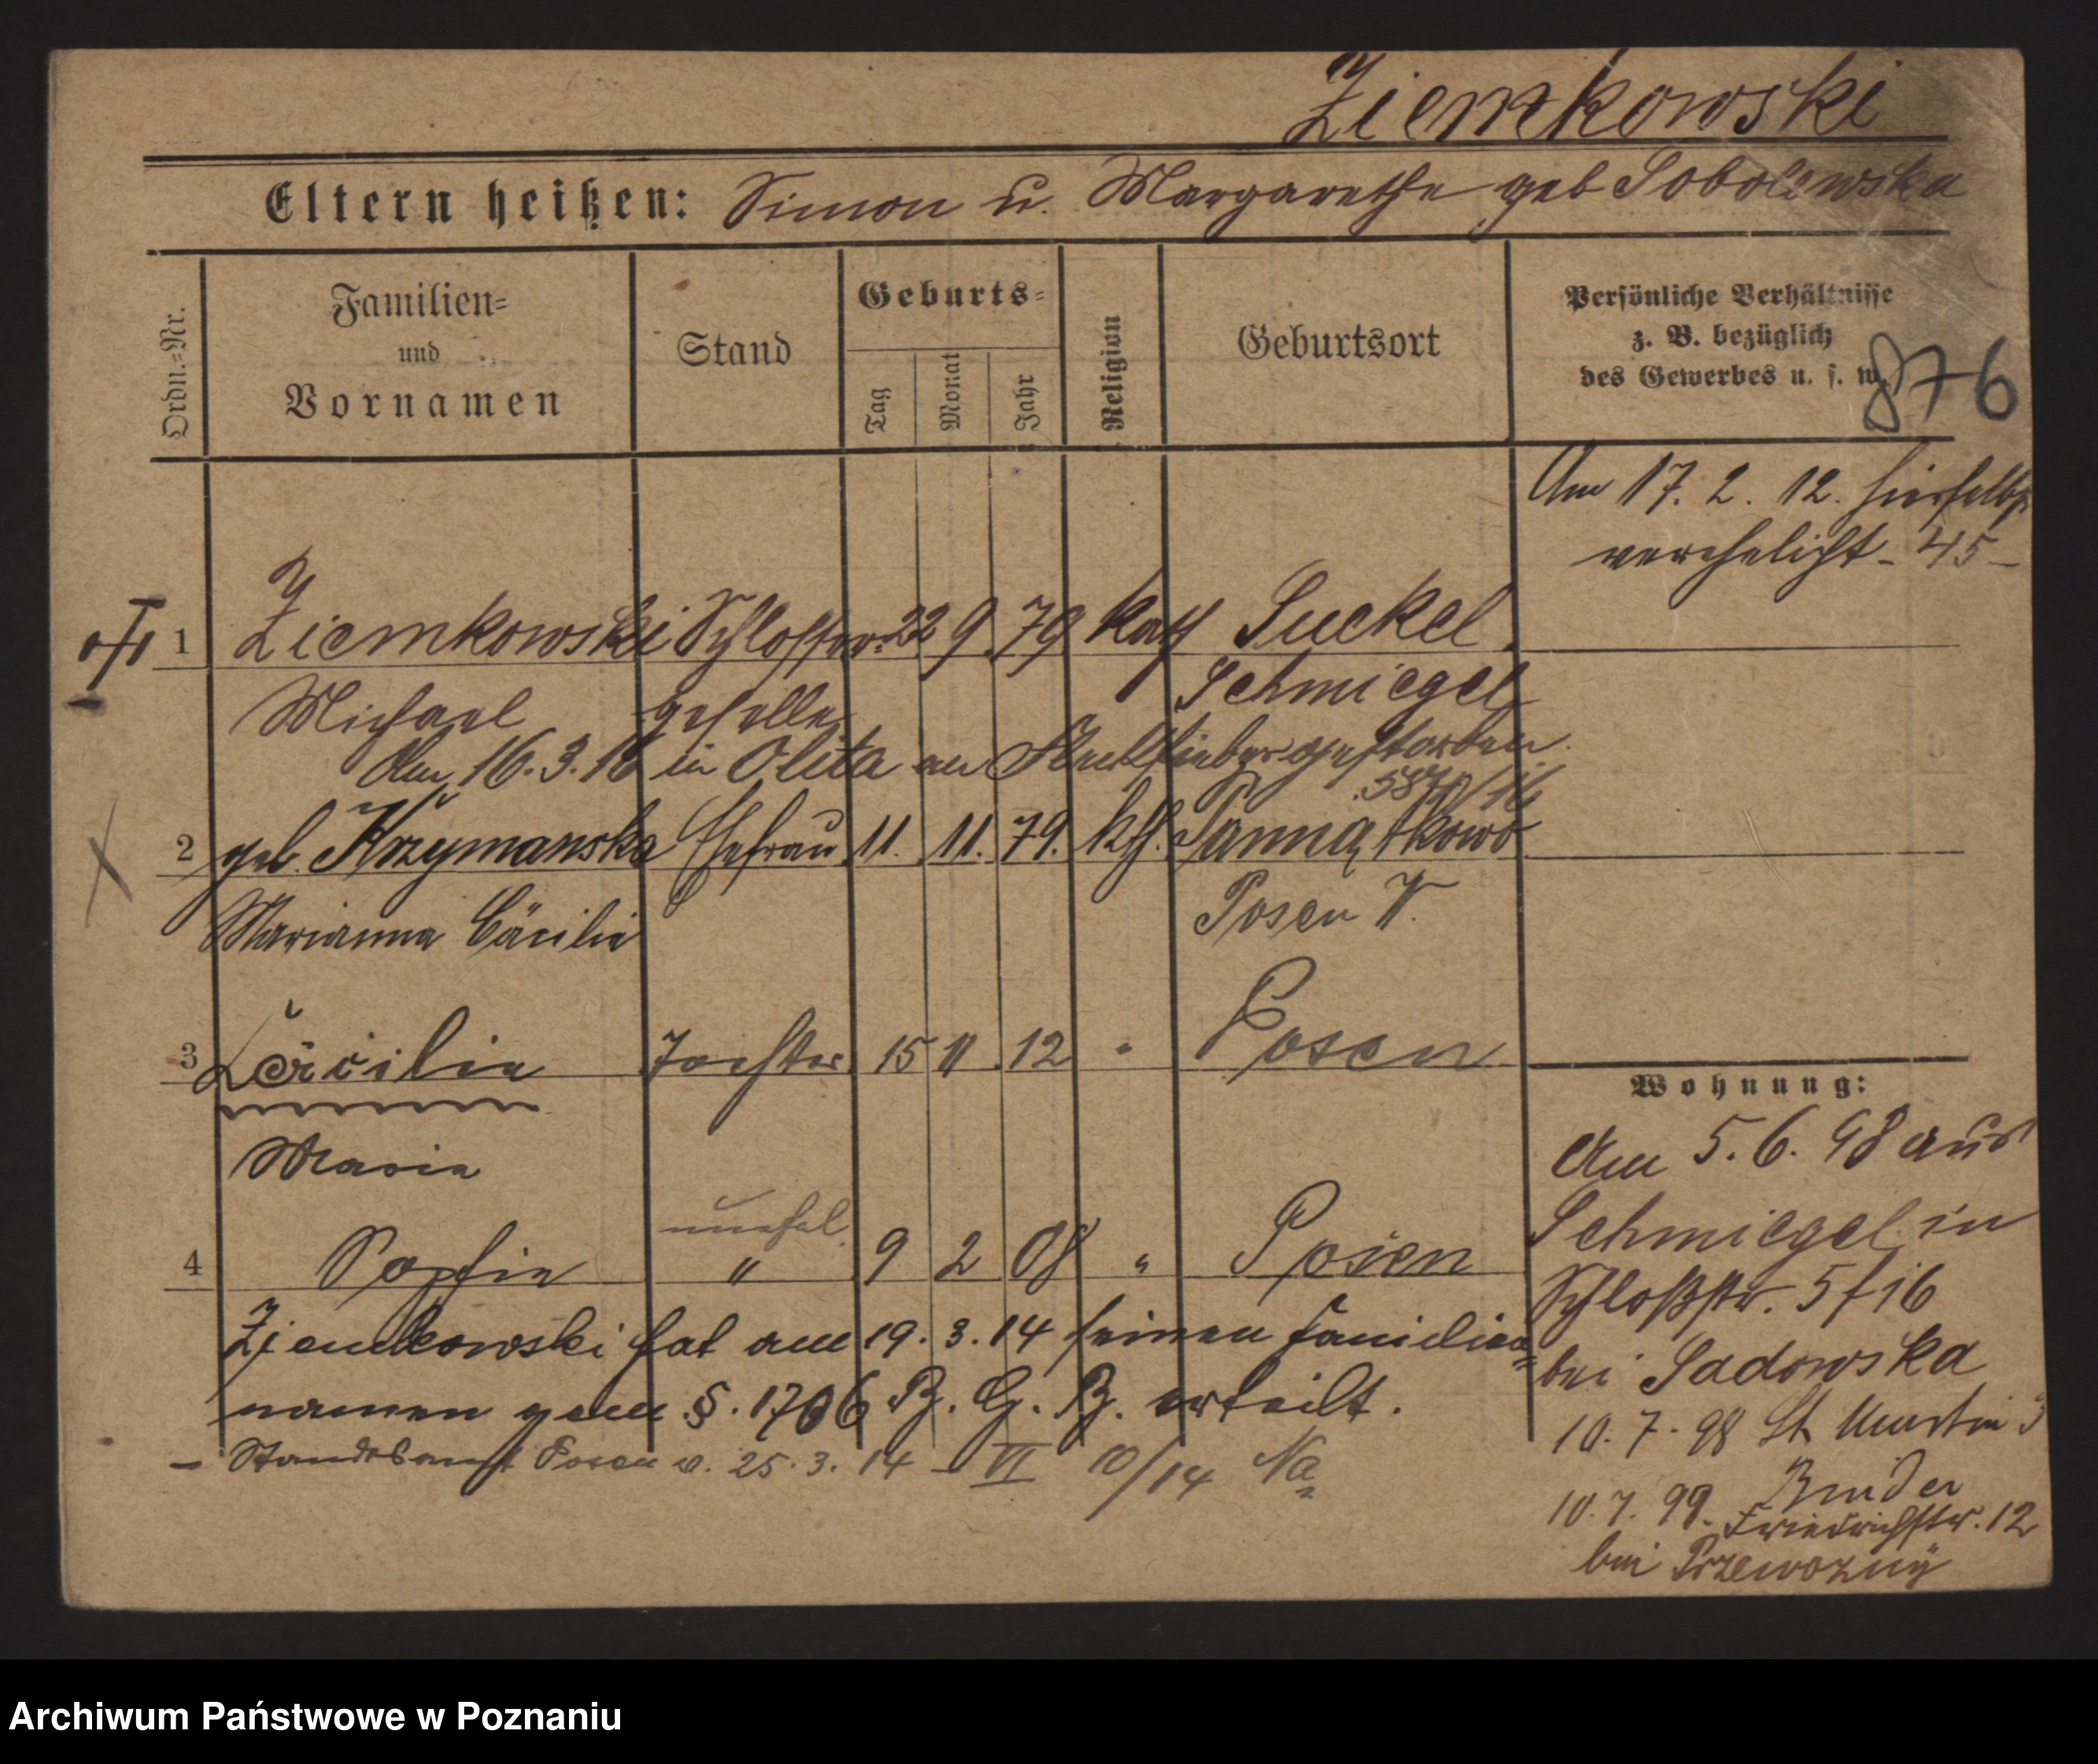 Ziemkowski
Eltern heißen: Simon u. Margarethe geb Sobolewska
Ordn.=Nr.
Familien=
und
Vornamen
Stand
Geburts=
Tag
Monat
Jahr
Religion
Geburtsort
Persönliche Verhältnisse
z. B. bezüglich
des Gewerbes u. s. w.
876
Am 17. 2. 12. hierselbst
verehelicht - 45 -
1 Ziemkowski Schlosser= 22 9. 79 kath Suckel
Michael geselle Schmiegel
Am 16. 3. 16 in Olita an gestorben.
2 geb. Krzymanska Ehefrau 11. 11. 79. kth.
Marianna Cäcilie Posen W.
3 Cäcilie Tochter 15 11. 12 " Posen
Maria
unehel.
4 Sophie " 9 2 08 " Posen
Ziemkowski hat am 19. 3. 14 seinen Familien=
namen gem §. 1706 B. G. B. erteilt.
- Standesamt Posen v. 25. 3. 14 - VI 10/14 Na
Wohnung:
Am 5. 6. 98 aus
Schmiegel in
Schloßstr. 5 f 16
bei Sadowska
10. 7. 98 St Martin 3
10. 7. 99. Friedrichstr. 12
bei Przewozny
Archiwum Państwowe w Poznaniu